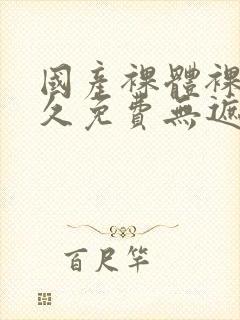 國產裸體裸
久免費無遮
百尺竿